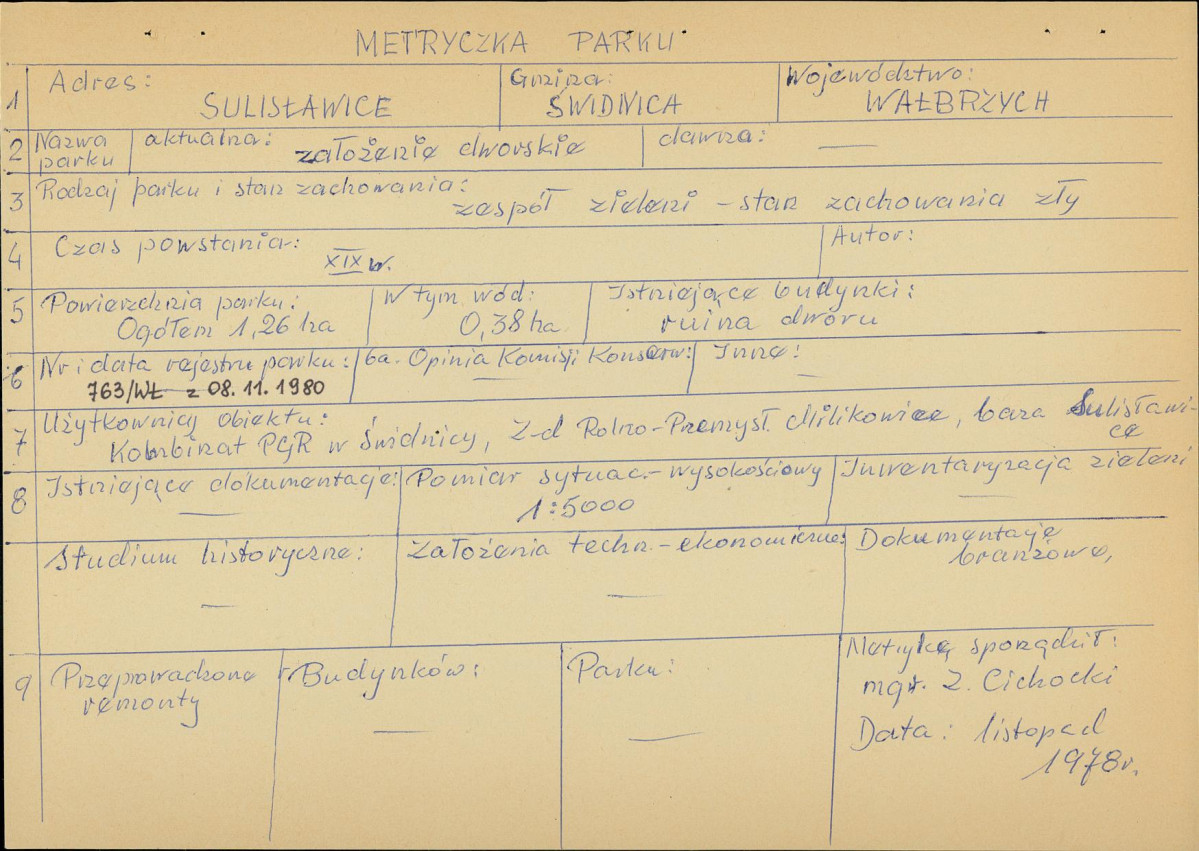 METRYCZKA PARKU
1 Adres: SULISŁAWICE
Gmina: ŚWIDNICA
Województwo: WAŁBRZYCH
2 Nazwa parku
aktualna: założenie dworskie
dawna: —
3 Rodzaj parku i stan zachowania:
zespół zieleni – stan zachowania zły
4 Czas powstania:
XIX w.
Autor:
5 Powierzchnia parku:
Ogółem 1,26 ha
W tym wód:
0,38 ha
Istniejące budynki:
ruina dworu
6 Nr i data rejestru parku:
763/WŁ z 08.11.1980
6a. Opinia Komisji Konserw:
—
Inne:
—
7 Użytkownicy obiektu:
Kombinat PGR w Świdnicy, Z-d Rolno-Przemysł. Milikowice, baza Sulisławi-
ce
8 Istniejące dokumentacje:
—
Pomiar sytuac.-wysokościowy
1:5000
Inwentaryzacja zieleni
—
Studium historyczne:
—
Założenia techn.-ekonomiczne:
—
Dokumentacje
branżowe,
9 Przeprowadzone
remonty
Budynków:
—
Parku:
—
Metrykę sporządził:
mgr. Z. Cichocki
Data: listopad
1978r.